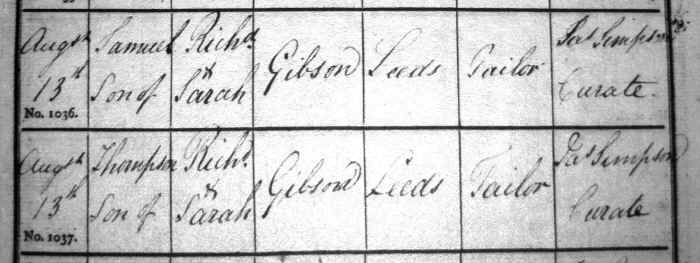 Augst Samuel Richd Gibson Leeds Tailor Jas Simpson
13th Son of & Sarah Curate.
No. 1036.
Augst Thompson Richd Gibson Leeds Tailor Jas Simpson
13th Son of & Sarah Curate
No. 1037.